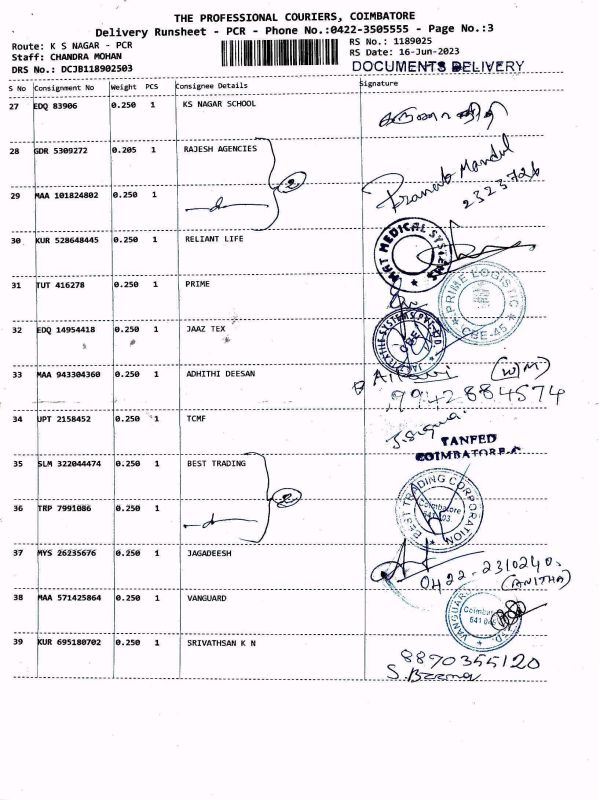 THE PROFESSIONAL COURIERS, COIMBATORE
Delivery Runsheet - PCR - Phone No.:0422-3505555 - Page No.:3
Route: K S NAGAR - PCR RS No.: 1189025
Staff: CHANDRA MOHAN RS Date: 16-Jun-2023
DRS No.: DCJB118902503 DOCUMENTS DELIVERY
S No Consignment No Weight PCS Consignee Details Signature
27 EDQ 83906 0.250 1 KS NAGAR SCHOOL
28 GDR 5309272 0.205 1 RAJESH AGENCIES
2
Pranab Mandal
2323726
29 MAA 101824802 0.250 1
MRT MEDICAL SYSTEMS
30 KUR 528648445 0.250 1 RELIANT LIFE
31 TUT 416278 0.250 1 PRIME
PRIME LOGISTIC
CBE-45
32 EDQ 14954418 0.250 1 JAAZ TEX
CBE
33 MAA 943304360 0.250 1 ADHITHI DEESAN
(W/M)
9942884574
34 UPT 2158452 0.250 1 TCMF
TANFED
COIMBATORE
35 SLM 322044474 0.250 1 BEST TRADING
2
BEST TRADING CORPORATION
Coimbatore
36 TRP 7991086 0.250 1
37 MYS 26235676 0.250 1 JAGADEESH
0422-2310240
(ANITHA)
38 MAA 571425864 0.250 1 VANGUARD
VANGUARD
Coimbatore
39 KUR 695180702 0.250 1 SRIVATHSAN K N
8870355120